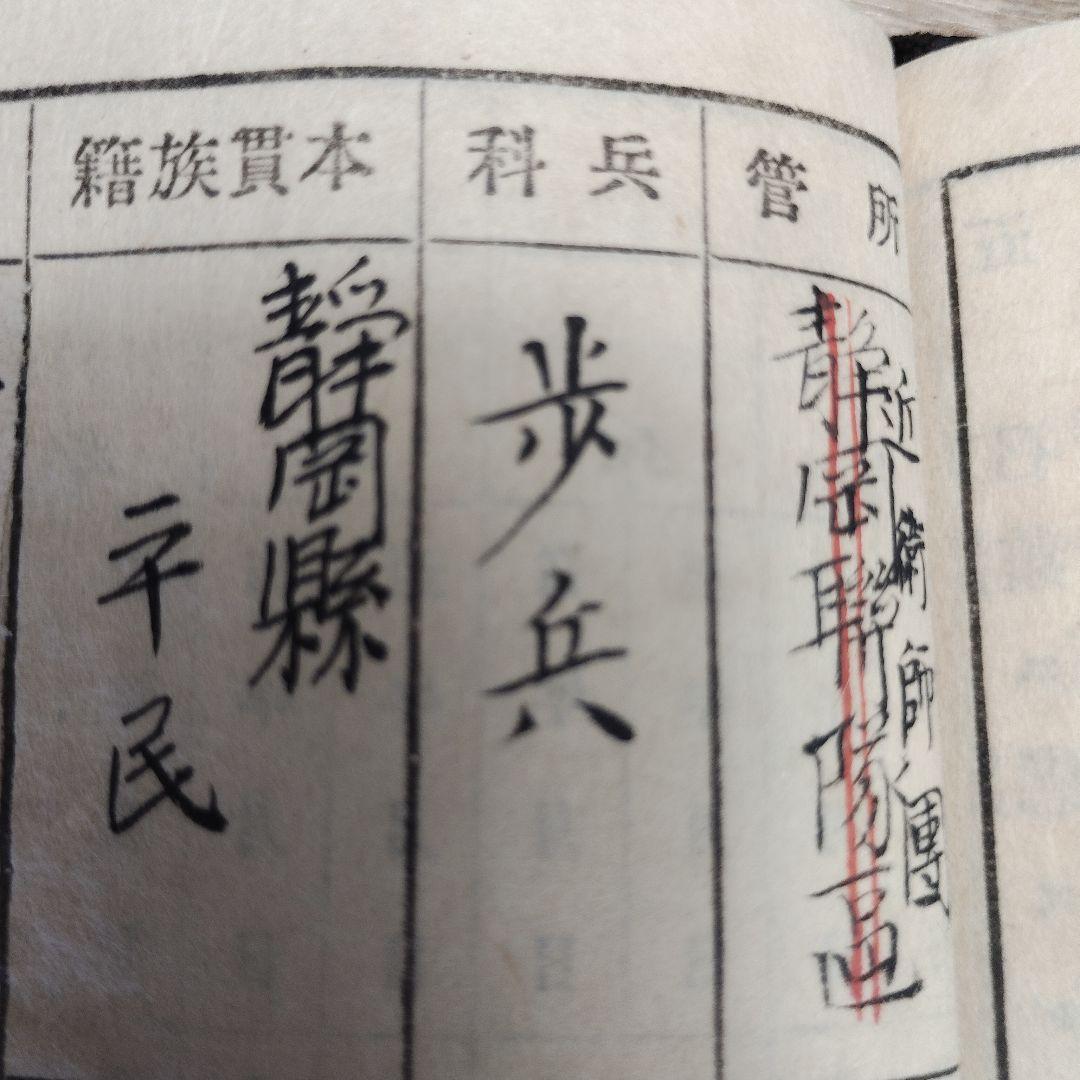 所管
近衞師團
靜岡聯隊區
兵科
歩兵
本貫族籍
靜岡縣
平民